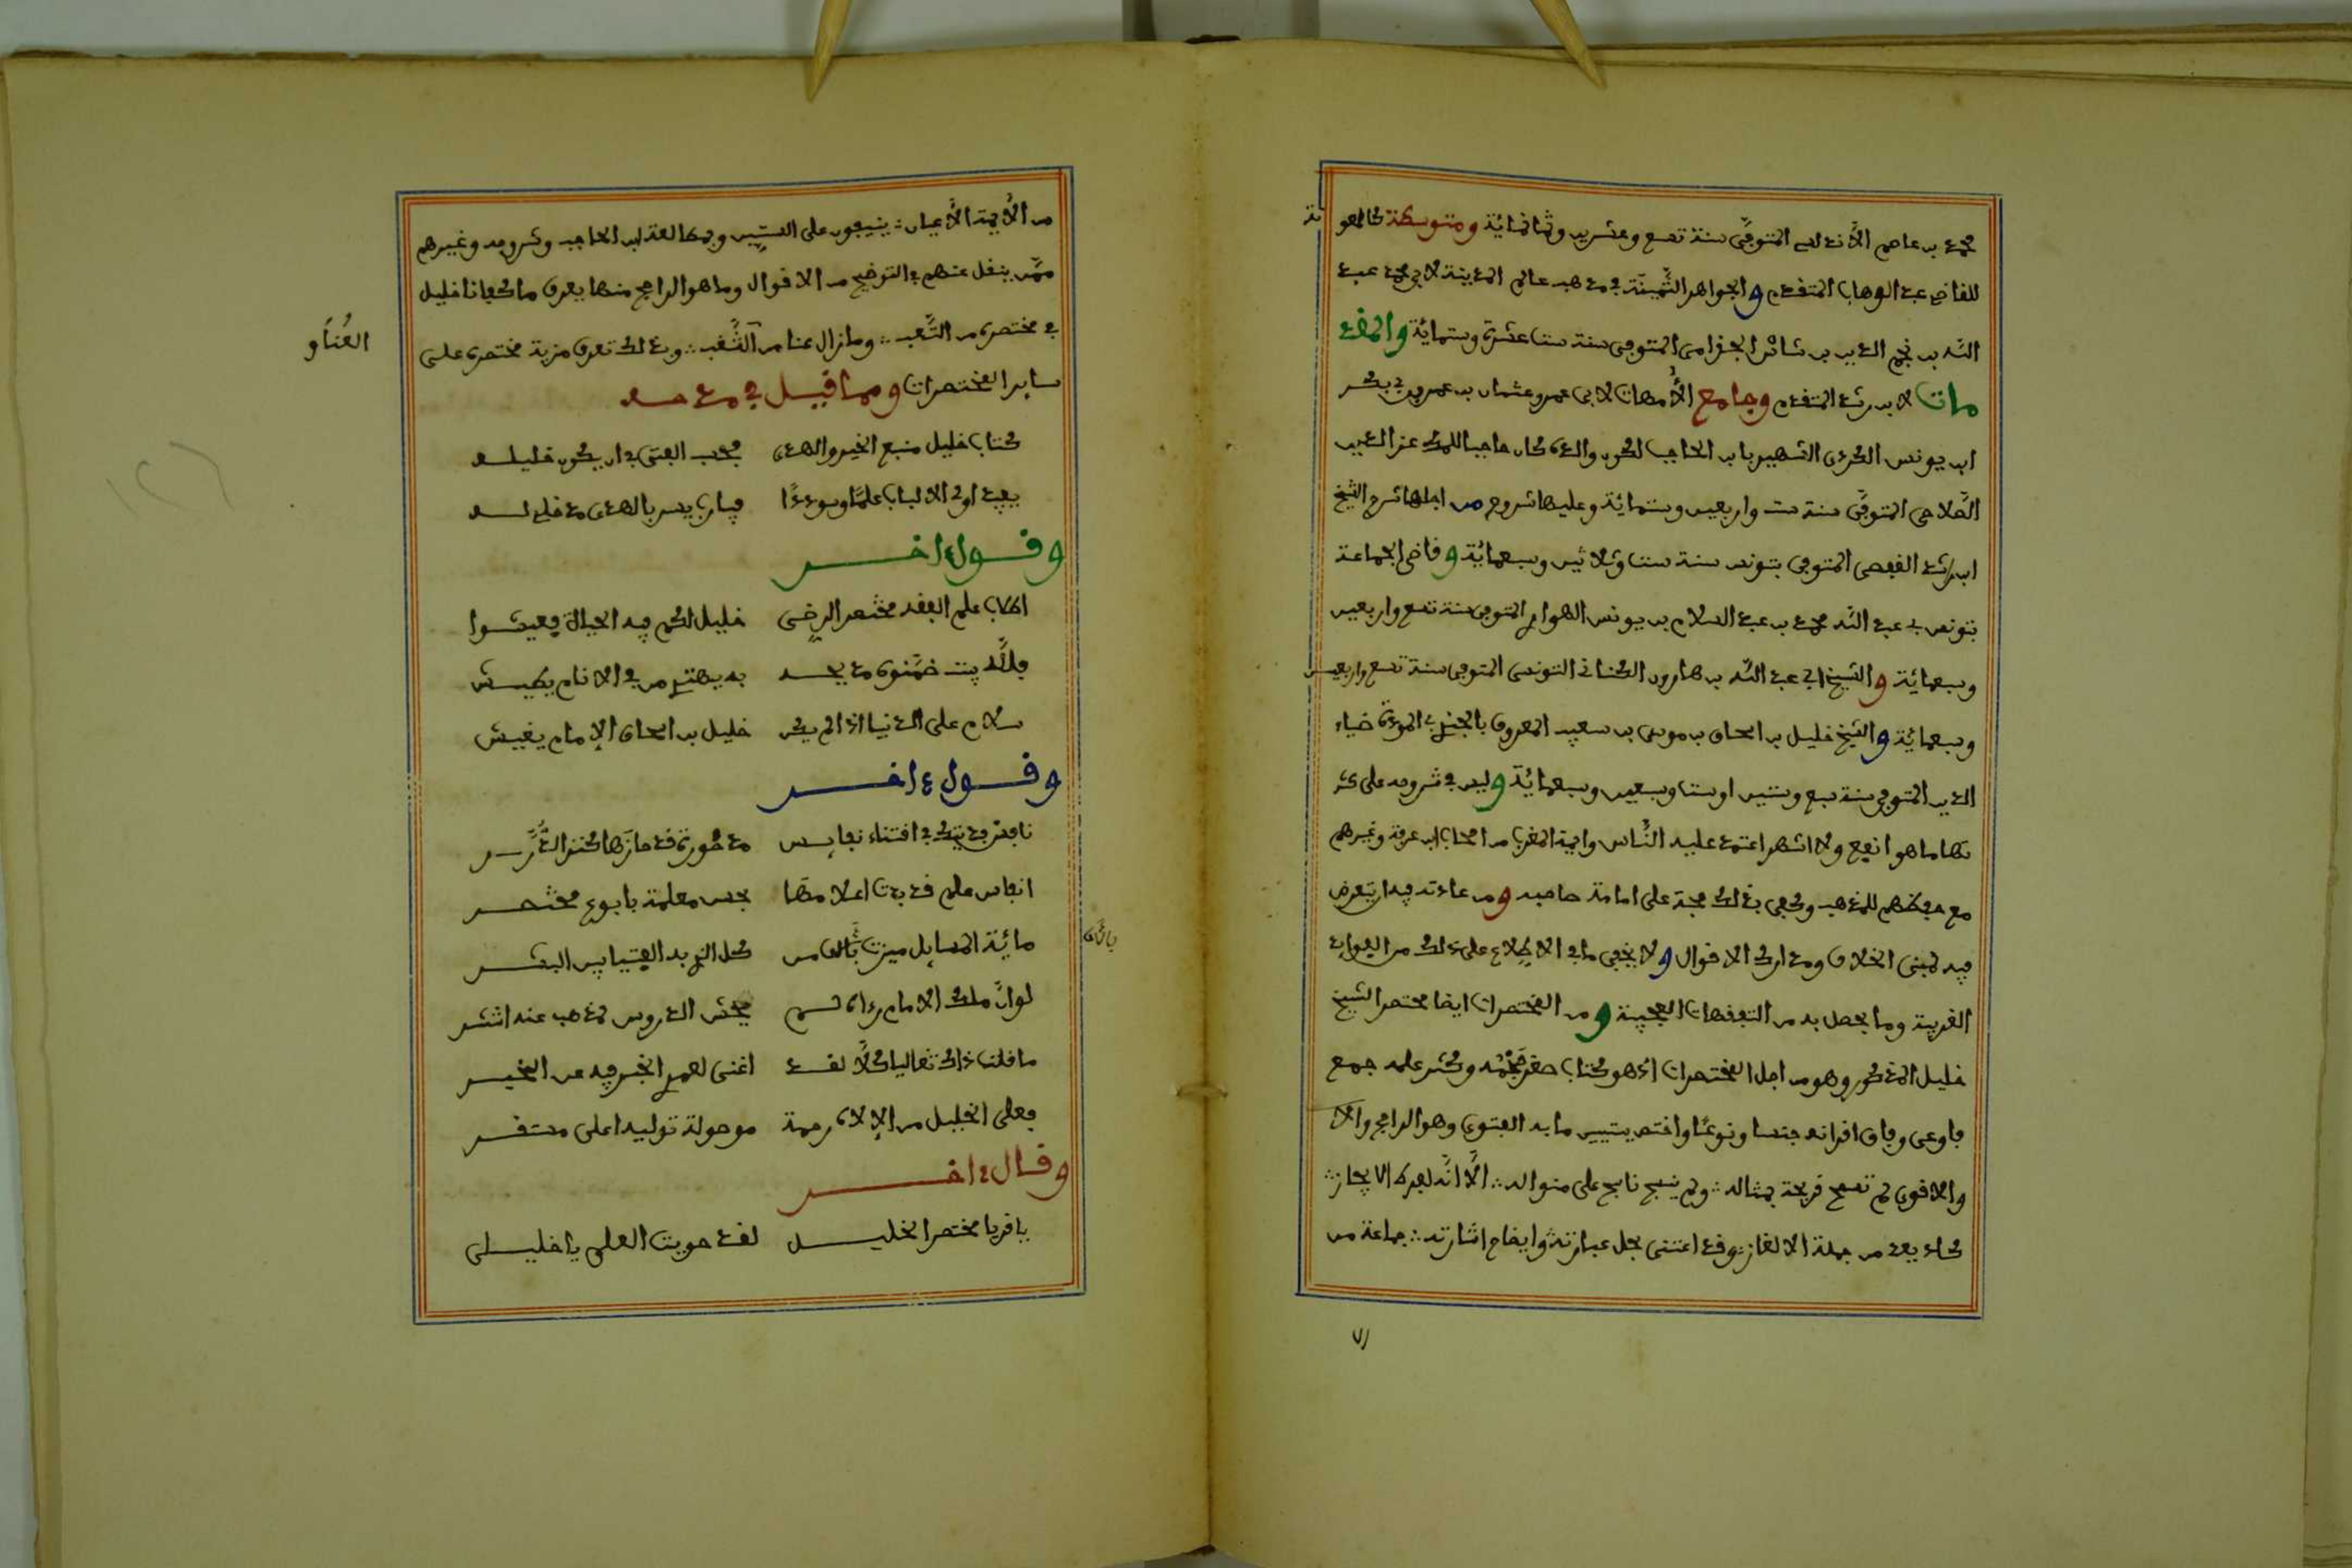 محمد بن عاصم الأندلسي المتوفى سنة تسع وعشرين وثمانمائة ومتوسطة كالمعونة
للقاضي عبد الوهاب المتقدم والجواهر الثمينة في مذهب عالم المدينة لابي محمد عبد
الله بن نجم الدين بن شاس الجذامي المتوفى سنة ست عشرة وستمائة والمقد
مات لابن رشد المتقدم وجامع الأمهات لابي عمرو عثمان بن عمر بن ابي بكر
ابن يونس الكردي الشهير بابن الحاجب لكون والدى كان حاجبا للملك عز الدين
الصلاحي المتوفى سنة ست واربعين وستمائة وعليها شروح من اجلها شرح الشيخ
ابن راشد القفصي المتوفى بتونس سنة ست وثلاثين وسبعمائة وقاضى الجماعة
بتونس ابي عبد الله محمد بن عبد السلام بن يونس الهواري المتوفى سنة تسع واربعين
وسبعمائة والشيخ ابي عبد الله بن هارون الكناني التونسي المتوفى سنة تسع واربعين
وسبعمائة والشيخ خليل بن اسحاق بن موسى بن سعيد المعروف بالجندي المودة ضياء
الدين المتوفى سنة سبع وستين او ست وسبعين وسبعمائة وليس في شروحه على كثر
تها ما هو انفع ولا اشهر اعتمد عليه الناس وايمة المغرب من اصحاب ابن عرفة وغيرهم
مع حفظهم للمذهب وكفى بذلك حجة على امامة صاحبه ومن عادته فيه ان يتعرض
فيه لمبنى الخلاف ومدارك الاقوال ولا يخفى ما في الاطلاع على ذلك من الفوايد
الغريبة وما يحصل به من التفقهات العجيبة ومن المختصرات ايضا مختصر الشيخ
خليل المذكور وهو من اجل المختصرات اذ هو كتاب صغر حجمه وكثر علمه جمع
فاوعى وفاق اقرانه جنسا ونوعا واختص بتبيين ما به الفتوى وهو الراجح والا
والاقوى لم تسمح قريحة بمثاله ولم ينسج ناسج على منواله الا انه لفرط الايجاز
كاد يعد من جملة الالغاز وقد اعتنى بحل عبارته وايضاح اشارته جماعة من
من الأيمة الأعيان ينيفون على الستين وبمطالعة ابن الحاجب وشروحه وغيرهم
ممن ينقل عنهم في التوضيح من الاقوال وما هو الراجح منها يعرف ما كفانا خليل
في مختصره من التعب وما زال عنا من الشغب وبذلك تعرف مزية مختصره على
ساير المختصرات ومما قيل في مدحه
كتاب خليل منبع الخير والهدى محب الفتى في ان يكون خليله
يفيد اولى الالباب علما وسوددا فيا رب يسر بالهدى مد خليله
وقول ءاخر
اطلاب علم الفقه مختصر الرضى خليل لكم فيه الحياة فعيشوا
سلام على الدنيا اذا لم يكن خليل بن اسحاق الإمام يعيش
وقول ءاخر
انفاس علم قد بدت اعلامها
مائة المسايل ميزت بالف من كل
لو ان ملك الإمام رءاه لم
ما قلت ذاك تغاليا كلا لقد اغنى لعمر الخبر فيه عن الخبر
فعلى الخليل من الإلاه رحمة موصولة توليه اعلى مستقر
وقال ءاخر
يا قريا مختصر الخليل لقد حويت العلم يا خليلى